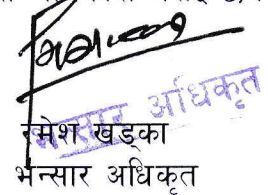 भन्सार अधिकृत
रमेश खड्का
भन्सार अधिकृत